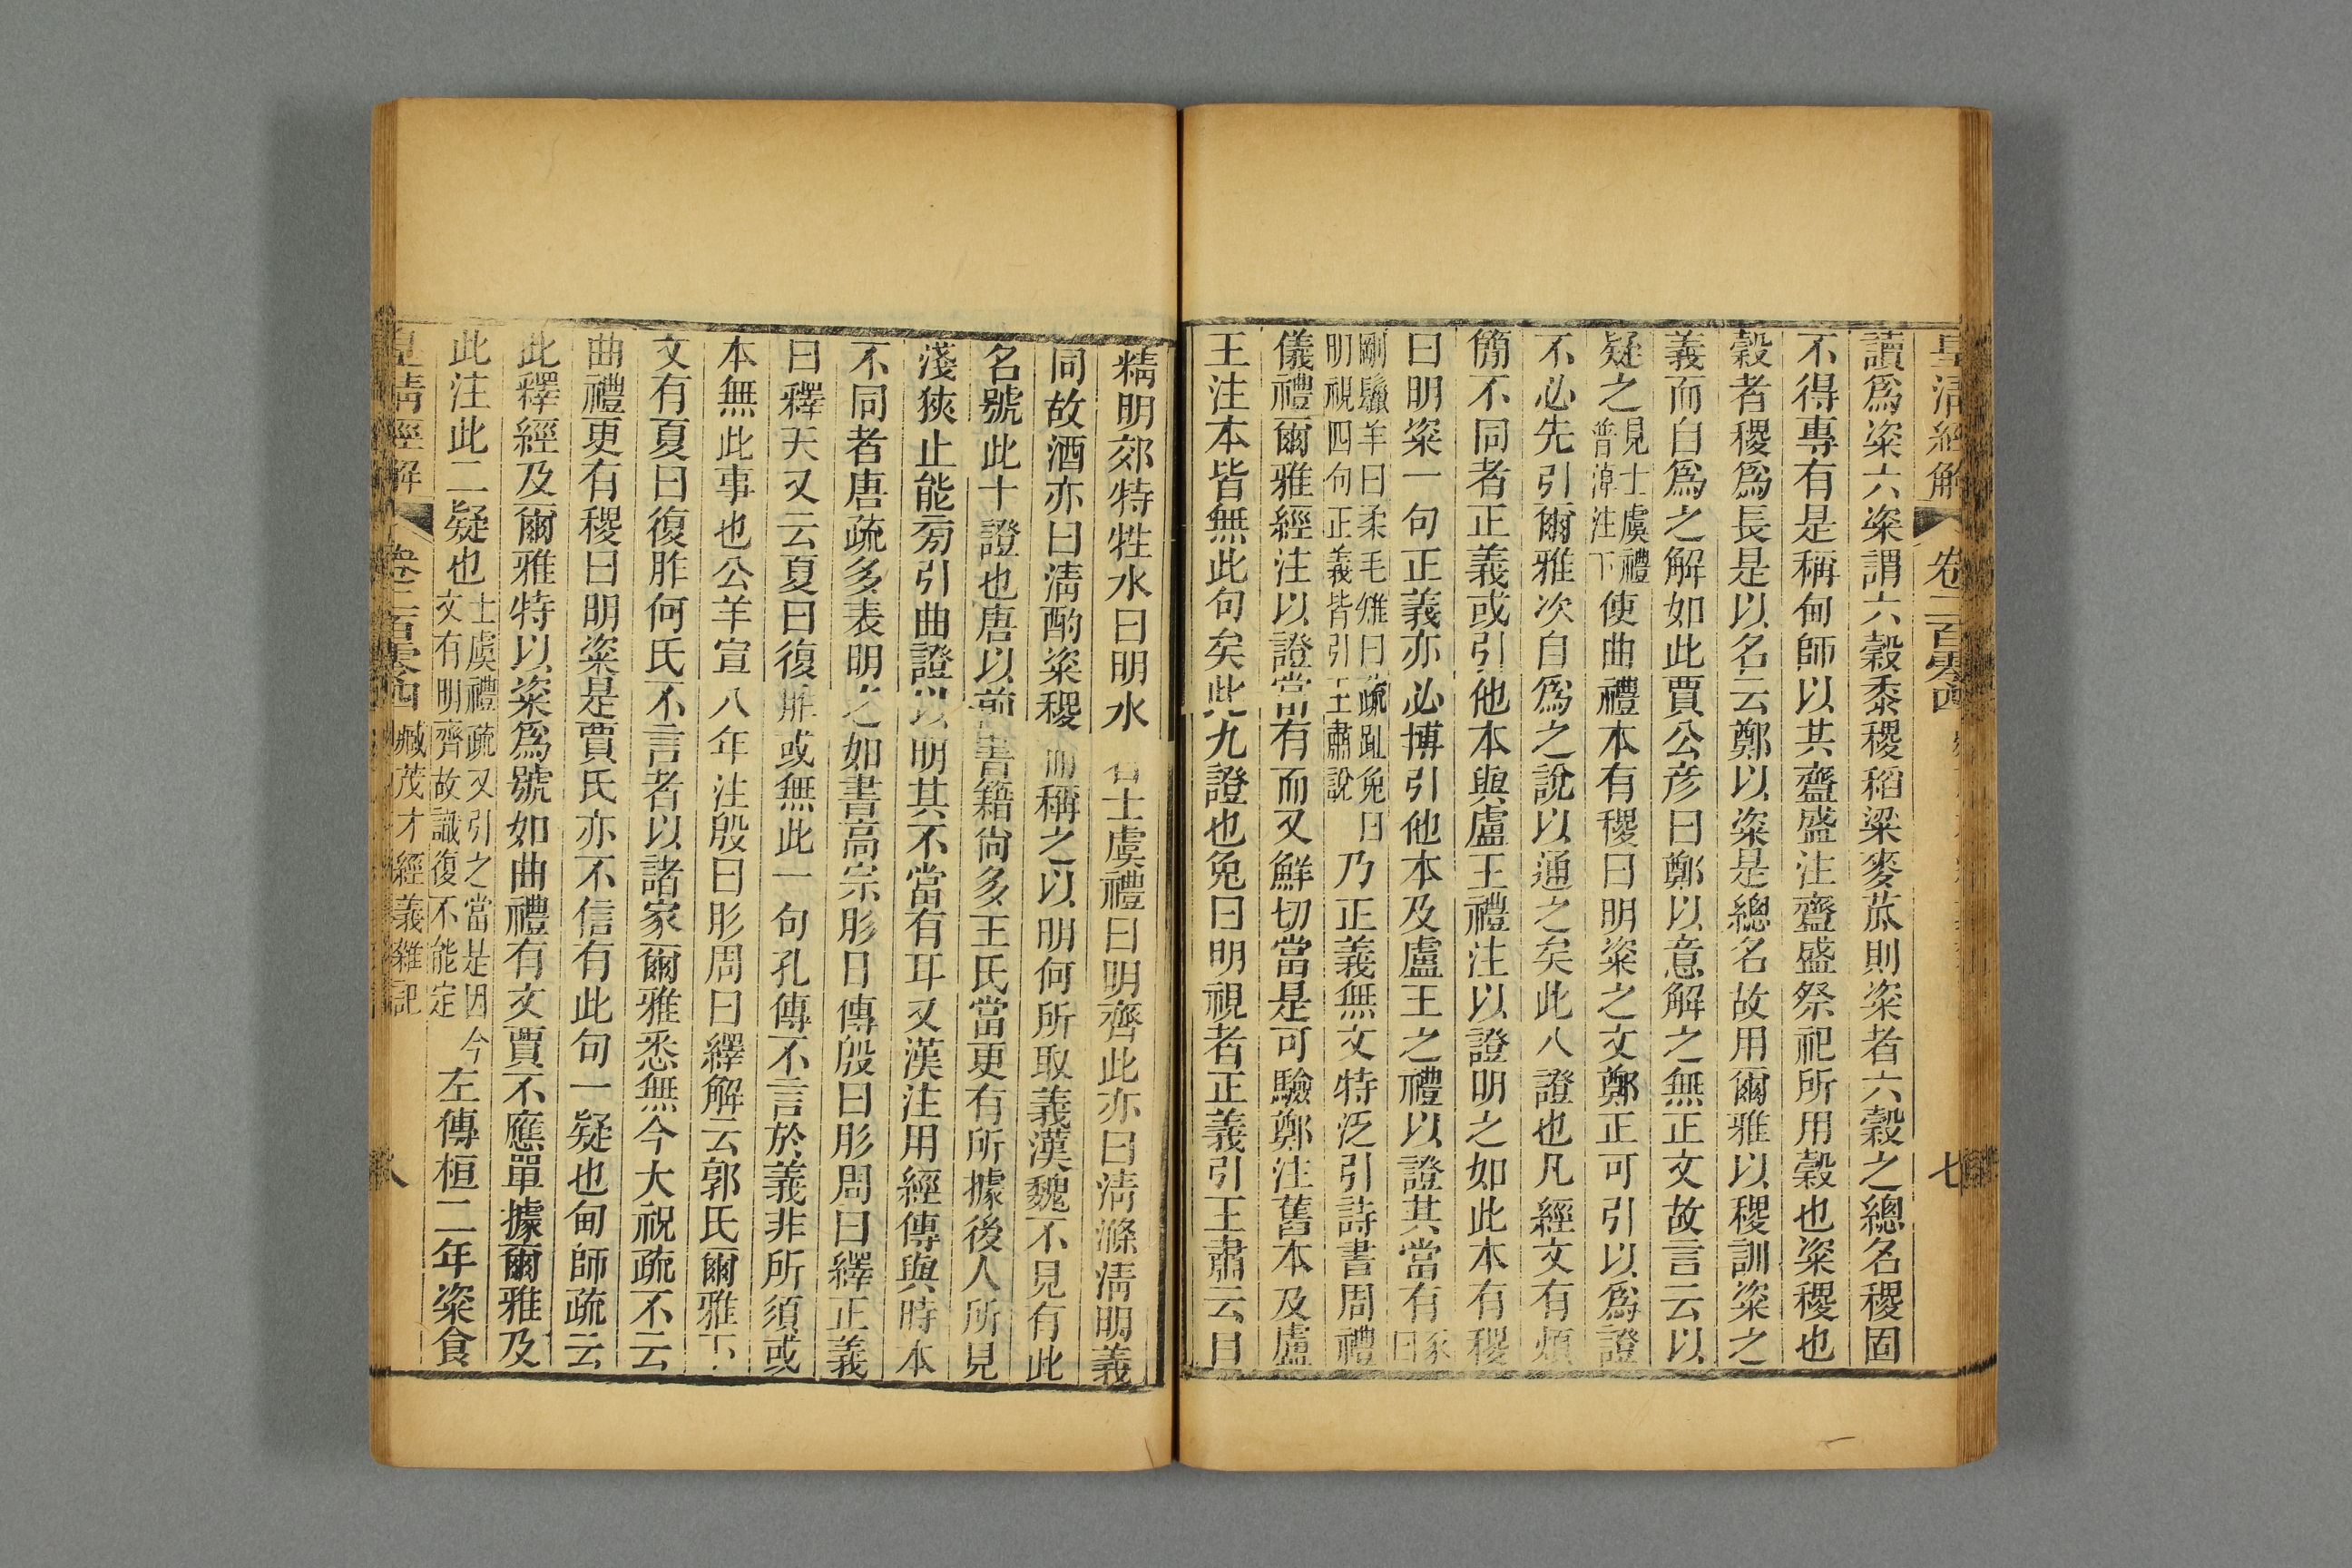 皇清經解 卷二百零四 七
讀爲粢六粢謂六穀黍稷稻粱麥苽則粢者六穀之總名稷固
不得專有是稱甸師以共齍盛注齍盛祭祀所用穀也粢稷也
穀者稷爲長是以名云鄭以粢是總名故用爾雅以稷訓粢之
義而自爲之解如此賈公彥曰鄭以意解之無正文故言云以
疑之見士虞禮普淖注下使曲禮本有稷曰明粢之文鄭正可引以爲證
不必先引爾雅次自爲之說以通之矣此八證也凡經文有煩
簡不同者正義或引他本與盧王禮注以證明之如此本有稷
曰明粢一句正義亦必博引他本及盧王之禮以證其當有豕曰
剛鬣羊曰柔毛雉曰疏趾兔曰明視四句正義皆引王肅說乃正義無文特泛引詩書周禮
儀禮爾雅經注以證當有而又鮮切當是可驗鄭注舊本及盧
王注本皆無此句矣此九證也兔曰明視者正義引王肅云目
精明郊特牲水曰明水 士虞禮曰明齊此亦曰淸滌淸明義
同故酒亦曰淸酌粢稷 而稱之以明何所取義漢魏不見有此
名號此十證也唐以前書籍尙多王氏當更有所據後人所見
淺狹止能旁引曲證以明其不當有耳又漢注用經傳與時本
不同者唐疏多表明之如書高宗肜日傳殷曰肜周曰繹正義
曰釋天又云夏曰復胙或無此一句孔傳不言於義非所須或
本無此事也公羊宣八年注殷曰肜周曰繹解云郭氏爾雅下
文有夏曰復胙何氏不言者以諸家爾雅悉無今大祝疏不云
曲禮更有稷曰明粢是賈氏亦不信有此句一疑也甸師疏云
此釋經及爾雅特以粢爲號如曲禮有文賈不應單據爾雅及
此注此二疑也士虞禮疏又引之當是因今文有明齊故識復不能定左傳桓二年粢食
皇清經解 卷二百零四 臧茂才經義雜記 八